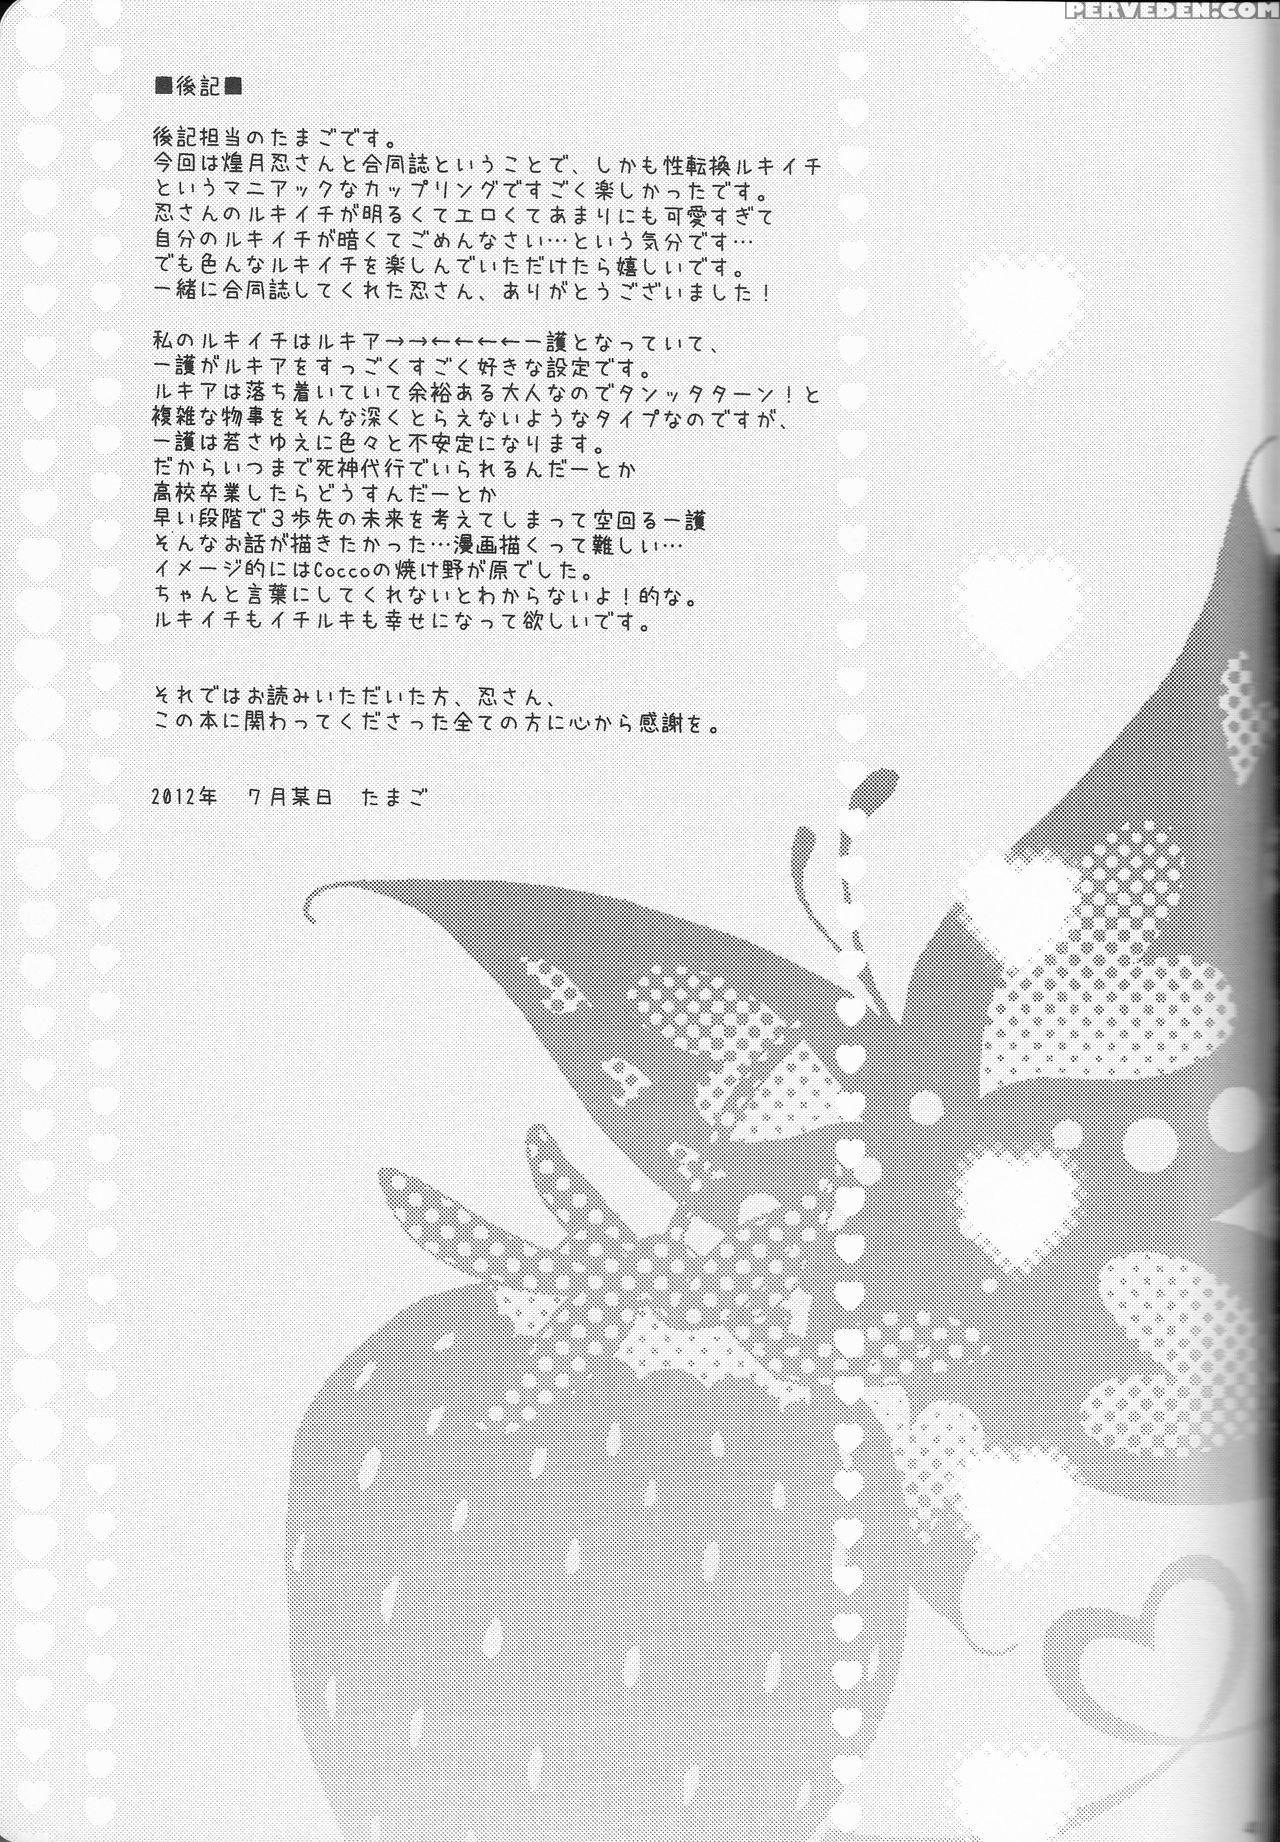 PERVEDEN.COM
■後記■
後記担当のたまごです。
今回は煌月忍さんと合同誌ということで、しかも性転換ルキイチ
というマニアックなカップリングですごく楽しかったです。
忍さんのルキイチが明るくてエロくてあまりにも可愛すぎて
自分のルキイチが暗くてごめんなさい…という気分です…
でも色んなルキイチを楽しんでいただけたら嬉しいです。
一緒に合同誌してくれた忍さん、ありがとうございました！
私のルキイチはルキア→→←←←←一護となっていて、
一護がルキアをすっごくすごく好きな設定です。
ルキアは落ち着いていて余裕ある大人なのでタンッタターン！と
複雑な物事をそんな深くとらえないようなタイプなのですが、
一護は若さゆえに色々と不安定になります。
だからいつまで死神代行でいられるんだーとか
高校卒業したらどうすんだーとか
早い段階で３歩先の未来を考えてしまって空回る一護
そんなお話が描きたかった…漫画描くって難しい…
イメージ的にはCoccoの焼け野が原でした。
ちゃんと言葉にしてくれないとわからないよ！的な。
ルキイチもイチルキも幸せになって欲しいです。
それではお読みいただいた方、忍さん、
この本に関わってくださった全ての方に心から感謝を。
2012年　７月某日　たまご